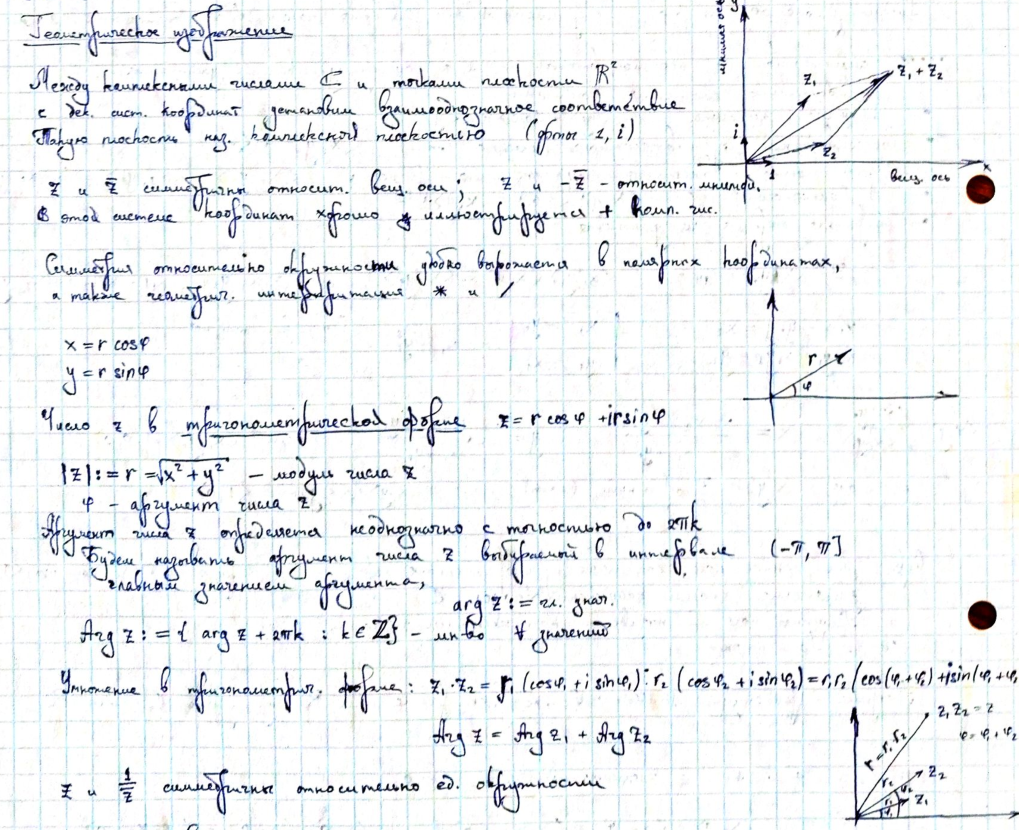 Геометрическое изображение
Между комплексными числами ℂ и точками плоскости ℝ²
с дек. сист. координат установим взаимооднозначное соответствие
Такую плоскость наз. комплексной плоскостью (орты 1, i)
z и z̄ симметричны относит. вещ. оси; z и -z̄ - относит. мнимой.
В этой системе координат хорошо иллюстрируется + комп. чис.
мнимая ось
z₁
z₁ + z₂
z₂
i
1
x
вещ. ось
Симметрия относительно окружности удобно выражается в полярных координатах,
а также геометрич. интерпретация * и /
x = r cosφ
y = r sinφ
r
φ
Число z в тригонометрической форме z = r cosφ + ir sinφ
|z| := r = √(x² + y²) — модуль числа z
φ - аргумент числа z,
Аргумент числа z определяется неоднозначно с точностью до 2πk
Будем называть аргумент числа z выбираемый в интервале (-π, π]
главным значением аргумента,
arg z := гл. знач.
Arg z := { arg z + 2πk : k ∈ ℤ} - мн-во ∀ значений
Умножение в тригонометрич. форме: z₁ · z₂ = r₁ (cosφ₁ + i sinφ₁) · r₂ (cosφ₂ + i sinφ₂) = r₁r₂ (cos(φ₁+φ₂) + i sin(φ₁+φ₂
Arg z = Arg z₁ + Arg z₂
z и 1/z̄ симметричны относительно ед. окружности
z₁z₂ = z
φ = φ₁ + φ₂
r = r₁r₂
r₂
z₂
φ₂
r₁
z₁
φ₁